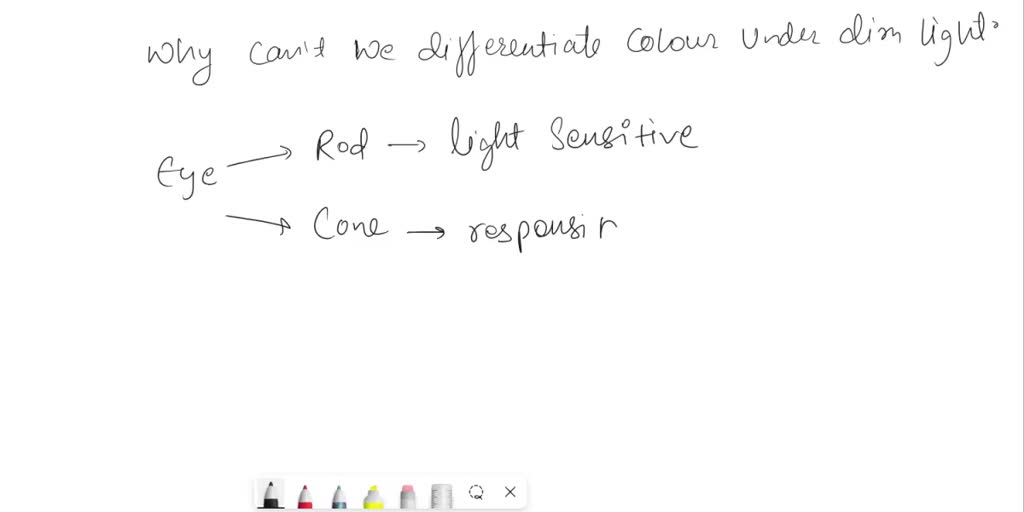 Why can't we differentiate colour under dim light.
Eye → Rod → light sensitive
→ Cone → responsin